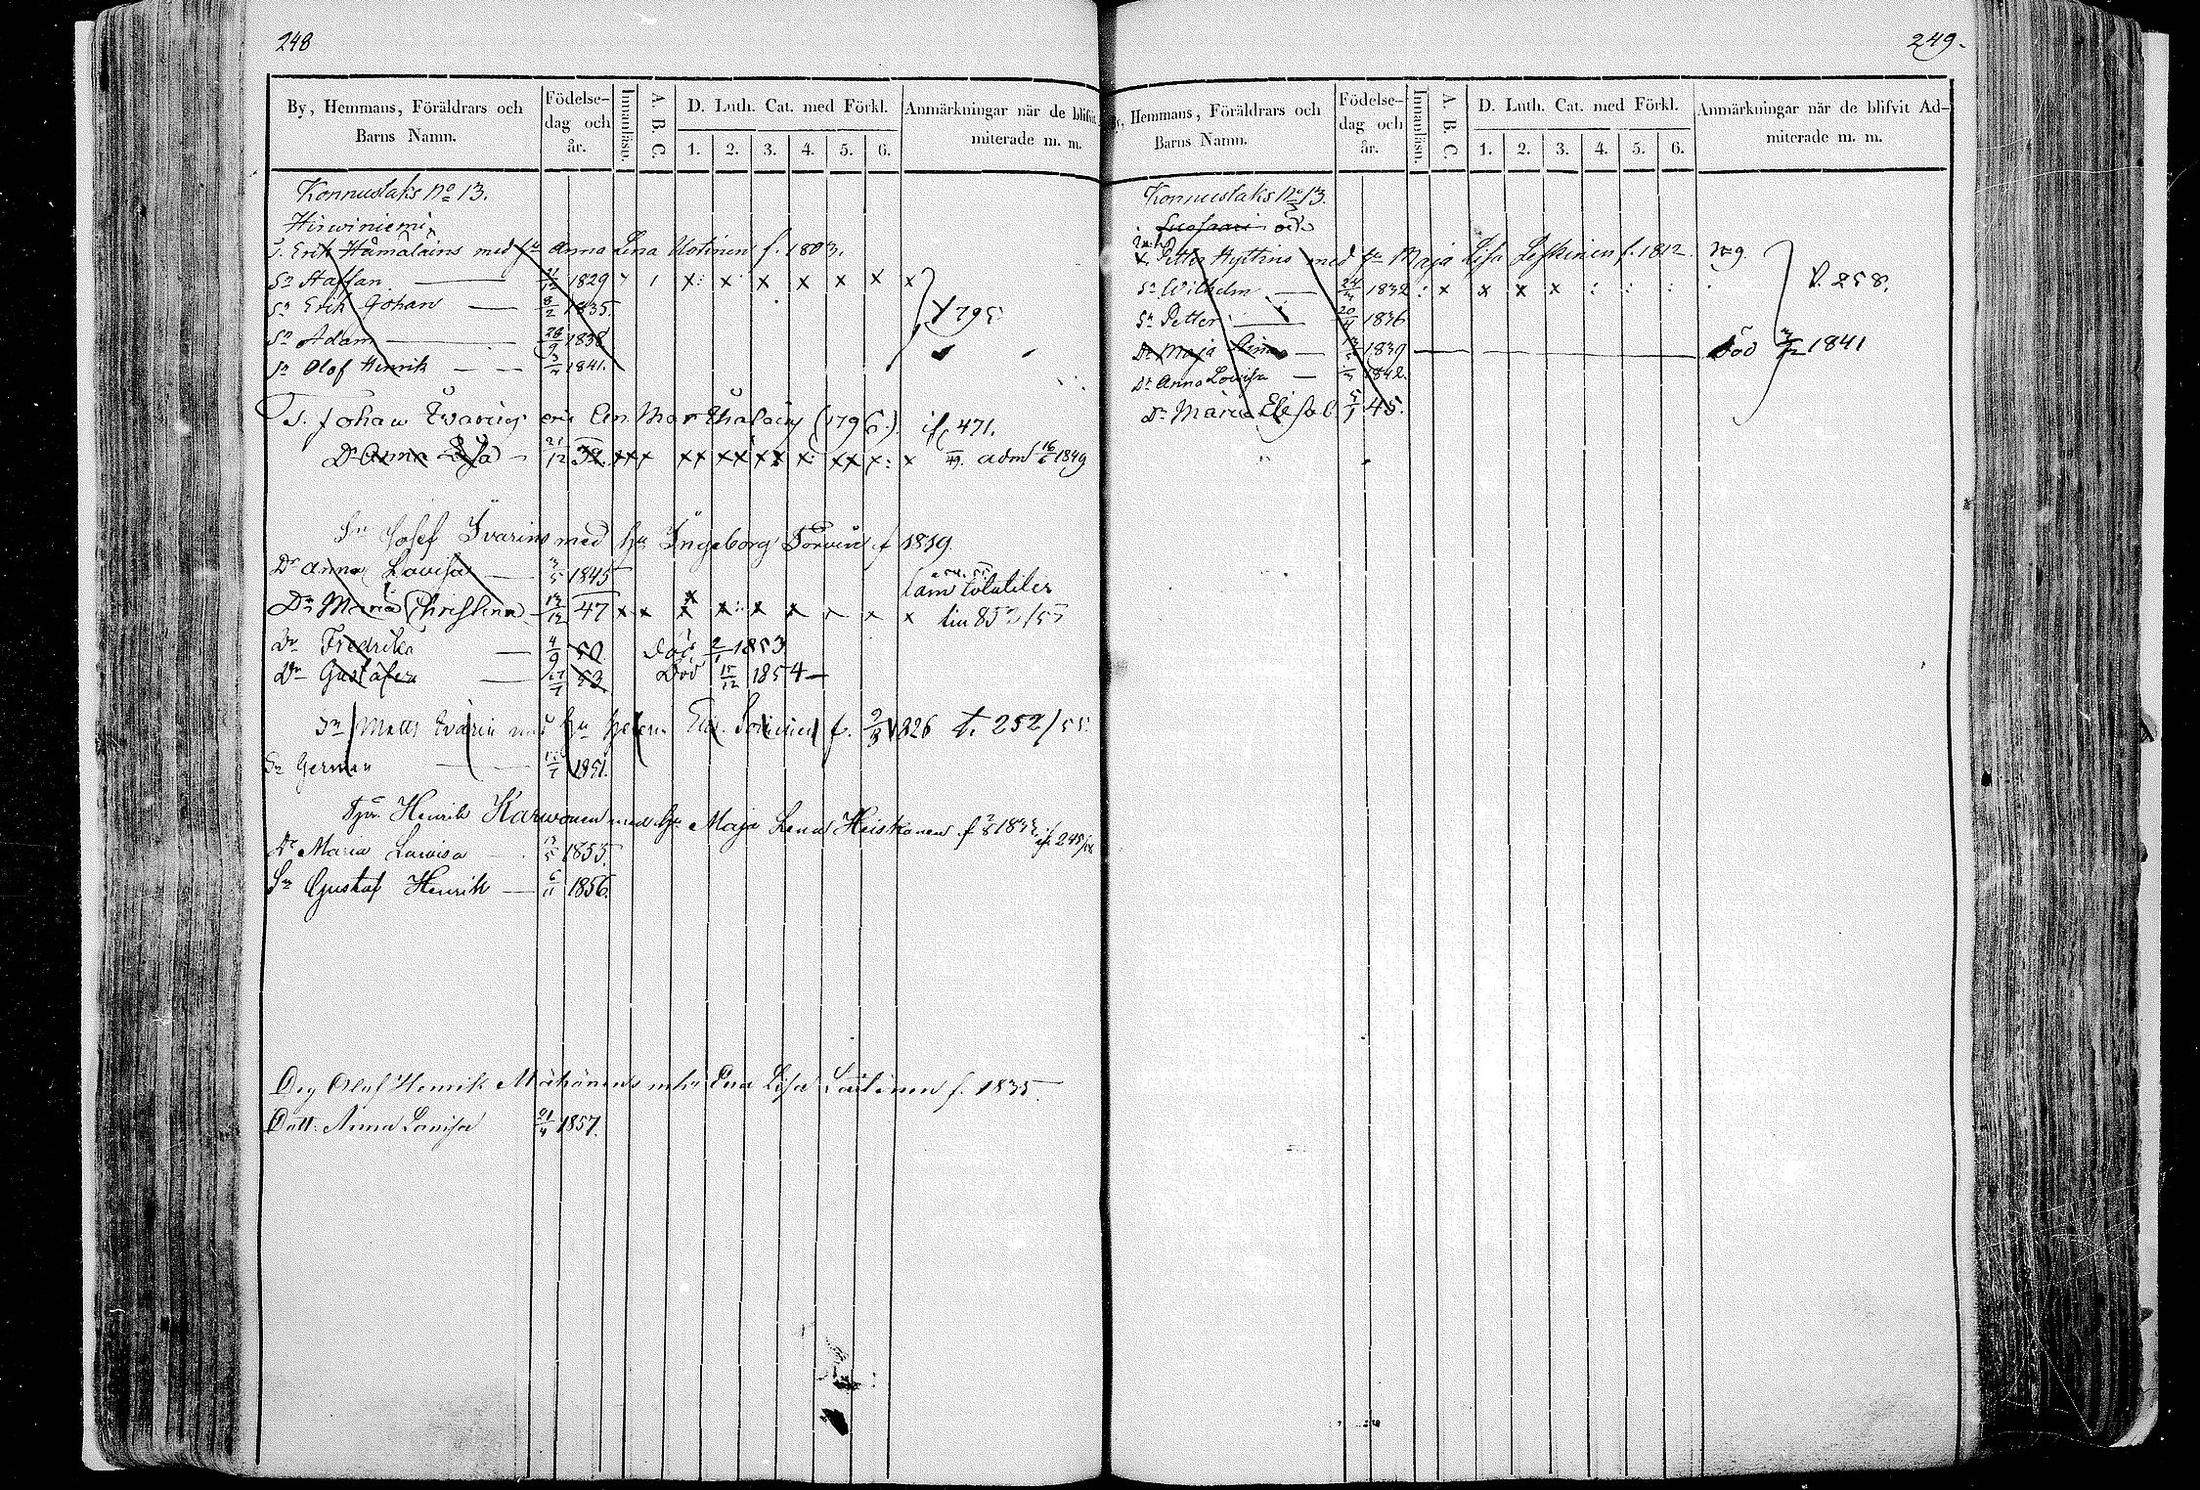 248
By, Hemmans, Föräldrars och Barns Namn.
Födelse-dag och år.
Innanläsn.
A. B. C.
D. Luth. Cat. med Förkl.
1. 2. 3. 4. 5. 6.
Anmärkningar när de blifvit
miterade m. m.
Konnuslaks No 13.
Hirviniemi
Erik Hämäläins med hu Anna Lena f. 1803.
Sn Staffan 1829 x x x x x x x
Sn Erik Johan 8/2 1835
Sn Adam 28/9 1838
Sn Olof Henrik 1841.
Johan Ivarins (1796.) 471.
Dr Anna Lisa 21/12 32. xxx xx xx xx x: xx x: x adm 16/6 1849
Sn Josef Ivarins med hu Ingeborg f 1819.
Dr Anna Lovisa 3/5 1845
Dr Maria Christina 13/12 47 x x x x: x x x x
Dr Fredrika 4/9 50 död 2/1 1853
Dr Gustafva 53 Död 15/12 1854
Sn Matts Ivarin med hu Helena f. 1826 t. 252/55.
Sn German 1851.
Henrik Karvonen med hu Maja Lena Heiskanen f
Dr Maria Lovisa 1855.
Sn Gustaf Henrik 6/11 1856.
Olof Henrik Eva Lisa f. 1835.
Dott: Anna Lovisa 21/4 1857.
249.
Hemmans, Föräldrars och Barns Namn.
Födelse-dag och år.
Innanläsn.
A. B. C.
D. Luth. Cat. med Förkl.
1. 2. 3. 4. 5. 6.
Anmärkningar när de blifvit Ad-
miterade m. m.
Konnuslaks No 13.
Petter Hyttins med hu Maja Lisa Leskinen f. 1812.
Sn Wilhelm 1832 : x x x x : : : 258.
Sn Petter 20/4 1836
Dr Maja Stina 1839 död 1841
Dr Anna Lovisa 1842.
Dr Maria Elisab. 45.